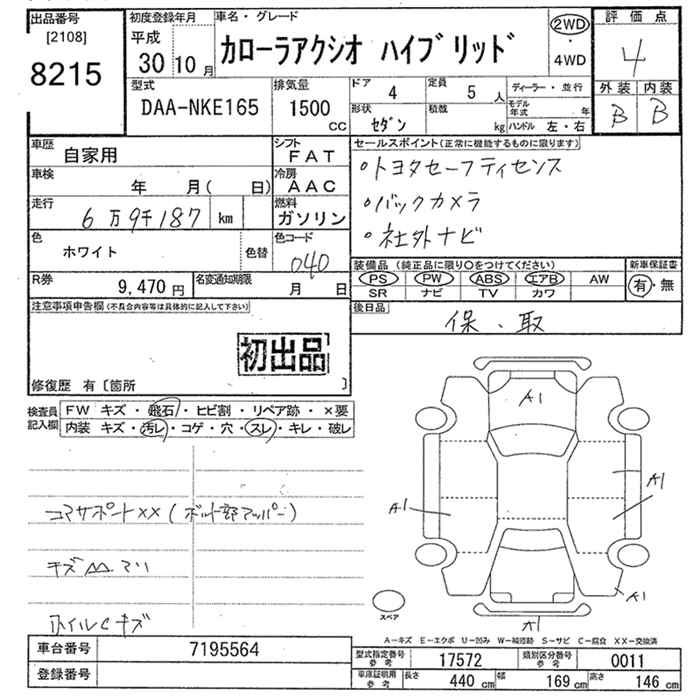 出品番号
[2108]
8215
初度登録年月
平成
30年10月
車名・グレード
カローラアクシオ ハイブリッド
2WD
・
4WD
評価点
4
外装 内装
B B
型式
DAA-NKE165
排気量
1500
CC
ドア 4
定員 5 人
形状 セダン
積載 kg
ディーラー・並行
モデル年式 年
ハンドル 左・右
車歴
自家用
シフト
FAT
車検
年 月( 日)
冷房
AAC
走行
6万9千187 km
燃料
ガソリン
色
ホワイト
色替
色コード
040
R券
9,470円
名変通知期限
月 日
セールスポイント(正常に機能するものに限ります)
・トヨタセーフティセンス
・バックカメラ
・社外ナビ
装備品(純正品に限り○をつけてください)
PS PW ABS エアB AW
SR ナビ TV カワ
新車保証書
有・無
後日品
保、取
注意事項申告欄(不具合内容等は具体的に記入して下さい)
初出品
修復歴 有〔箇所 〕
検査員記入欄
FW キズ・飛石・ヒビ割・リペア跡・×要
内装 キズ・汚レ・コゲ・穴・スレ・キレ・破レ
コアサポートXX(ボルト部アッパー)
ホイルCキズ
A1
A1
A1
A1
A1
スペア
A-キズ E-エクボ U-凹み W-補修跡 S-サビ C-腐食 XX-交換済
車台番号
7195564
登録番号
型式指定番号参考
17572
類別区分番号参考
0011
車庫証明用参考
長さ 440 cm
幅 169 cm
高さ 146 cm